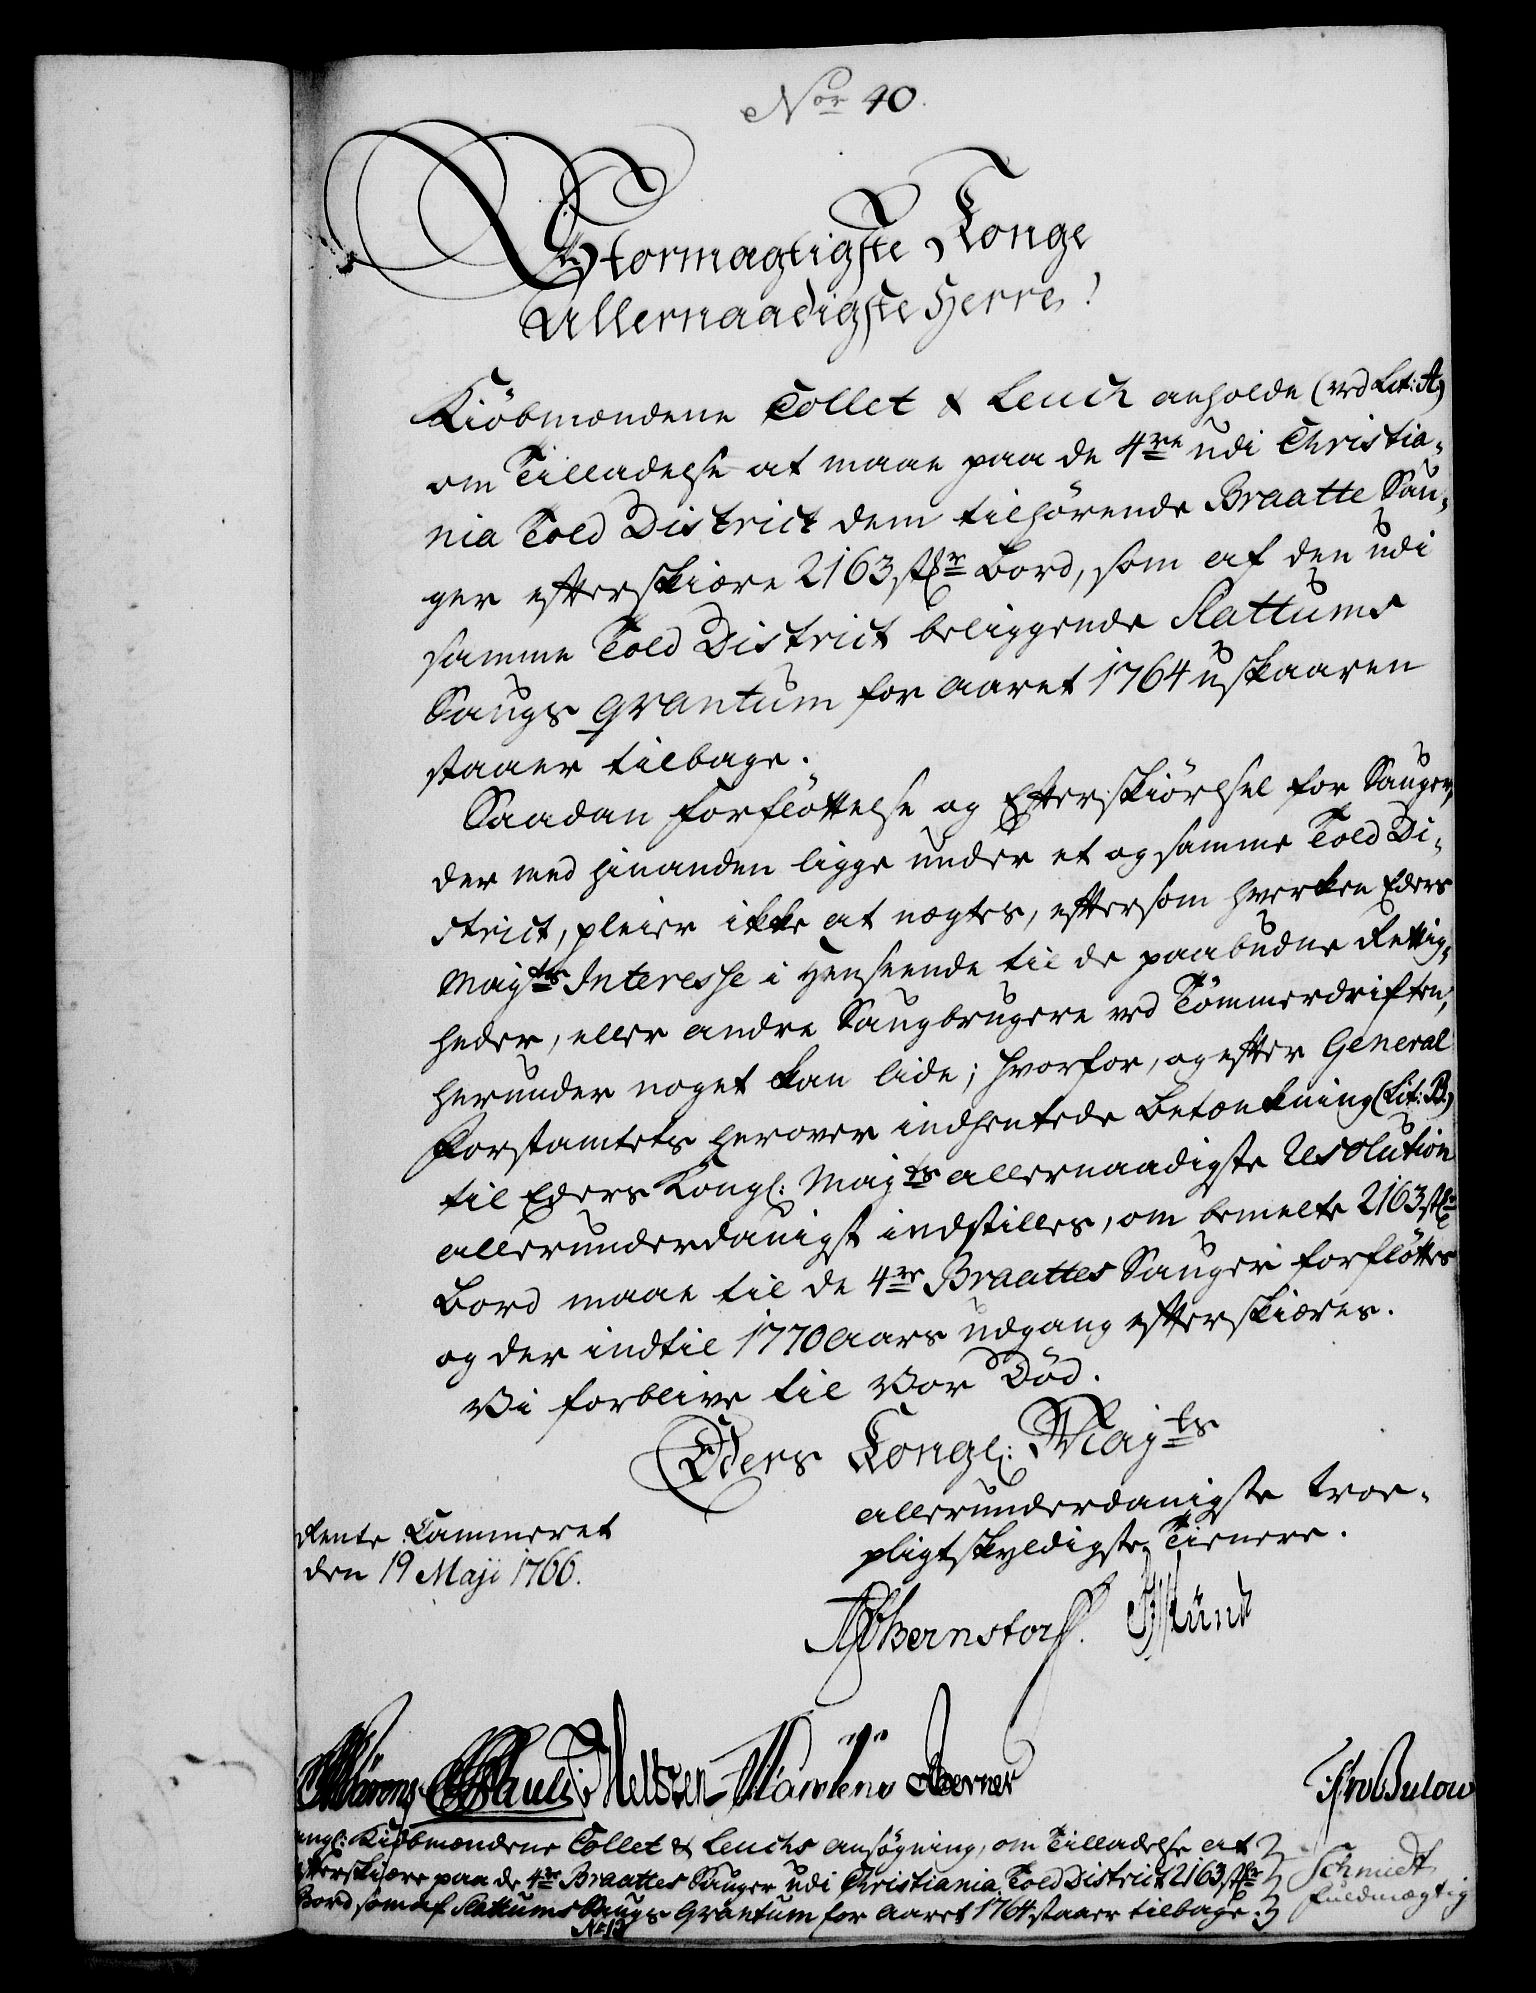 Nor 40.
Stormagtigste Konge
Allernaadigste Herre!
Kiöbmændene Collet & Leuch anholde (ved Lit: A)
om Tilladelse at maae paa de 4re udi Christia-
nia Told District dem tilhørende Braatte Sau-
ger efterskiære 2163 stkr Bord, som af den udi
samme Told District beliggende Slattums
Saugs qvantum for Aaret 1764 uskaaren
staaer tilbage.
Saadan Forfløttelse og Efterskiørsel for Sauger,
der med hinanden ligge under et og samme Told Di-
strict, pleier ikke at nægtes, eftersom hverken Eders
Mayts Interesse i Henseende til de paabudne Rettig-
heder, eller andre Saugbrugere ved Tømmerdriften,
herunder noget kan lide; hvorfor, og efter General
Forstamtets herover indhentede Betænkning (Lit: B.)
til Eders Kongl: Mayts allernaadigste Resolution
allerunderdanigst indstilles, om bemelte 2163 stkr
Bord maae til de 4re Braattes Sauger forfløttes
og der indtil 1770 Aars udgang efterskiæres.
Vi forblive til Vor Død.
Eders Kongl: Mayts
allerunderdanigste troe-
pligtskyldigste Tienere.
Rente Cammeret
den 19 Maji 1766.
Bernstorff.
Pauli Meltzen Berner
Bulow
angl: Kiøbmændene Collet & Leuchs ansøgning, om Tilladelse at
efterskiære paa de 4re Braattes Sauger udi Christiania Told District 2163 stkr
Bord som af Slattums Saugs Qvantum for Aaret 1764 staaer tilbage.
Schmidt
fuldmægtig
No 13